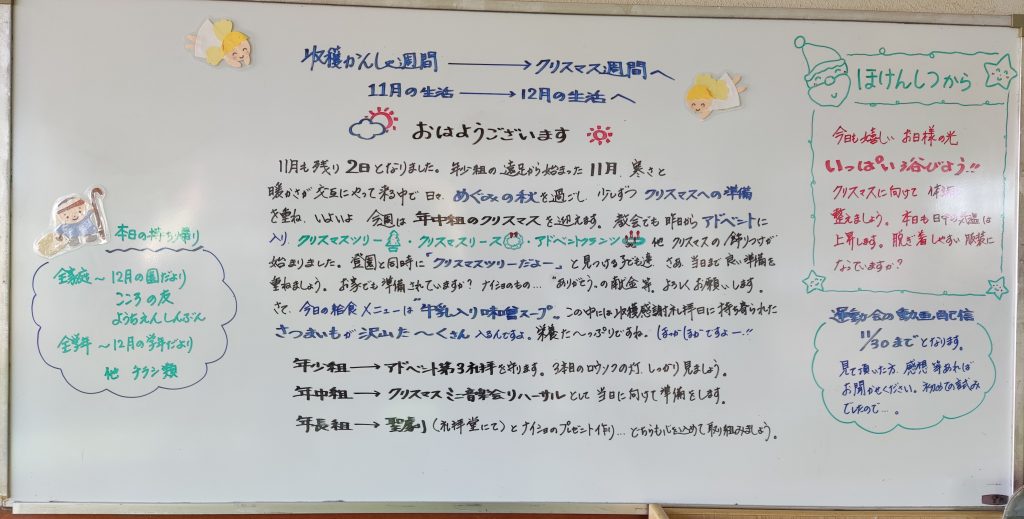 収穫かんしゃ週間 → クリスマス週間へ
11月の生活 → 12月の生活へ
おはようございます
11月も残り2日となりました。年少組の遠足から始まった11月、寒さと
暖かさが交互にやって来る中で日々、めぐみの秋を過ごし、少しずつクリスマスへの準備
を重ね、いよいよ今週は年中組のクリスマスを迎えます。教会でも昨日からアドベントに
入り、クリスマスツリー・クリスマスリース・アドベントクランツ他クリスマスの飾りつけが
始まりました。登園と同時に「クリスマスツリーだよー」と見つける子ども達。さあ、当日まで良い準備を
重ねましょう。お家でも準備されていますか？ナイショのもの…"ありがとう"の献金等、よろしくお願いします。
さて、今日の給食メニューは"牛乳入り味噌スープ"。この中には収穫感謝礼拝日に持ち寄られた
さつまいもが沢山た〜くさん入るんですよ。栄養た〜っぷりですね。ほかほかですよー!!
年少組→アドベント第3礼拝を守ります。3本目のロウソクの灯、しっかり見ましょう。
年中組→クリスマスミニ音楽会リハーサルとして当日に向けて準備をします。
年長組→聖劇(礼拝堂にて)とナイショのプレゼント作り…どちらも心を込めて取り組みましょう。
本日の持ち帰り
全家庭〜12月の園だより
こころの友
ようちえんしんぶん
全学年〜12月の学年だより
他 チラシ類
ほけんしつから
今日も嬉しいお日様の光
いっぱい浴びよう!!
クリスマスに向けて体調
整えましょう。本日も日中の気温は
上昇します。脱ぎ着しやすい服装に
なっていますか？
運動会の動画配信
11/30までとなります。
見て頂いた方、感想等あれば
お聞かせください。初めての試み
でしたので…。